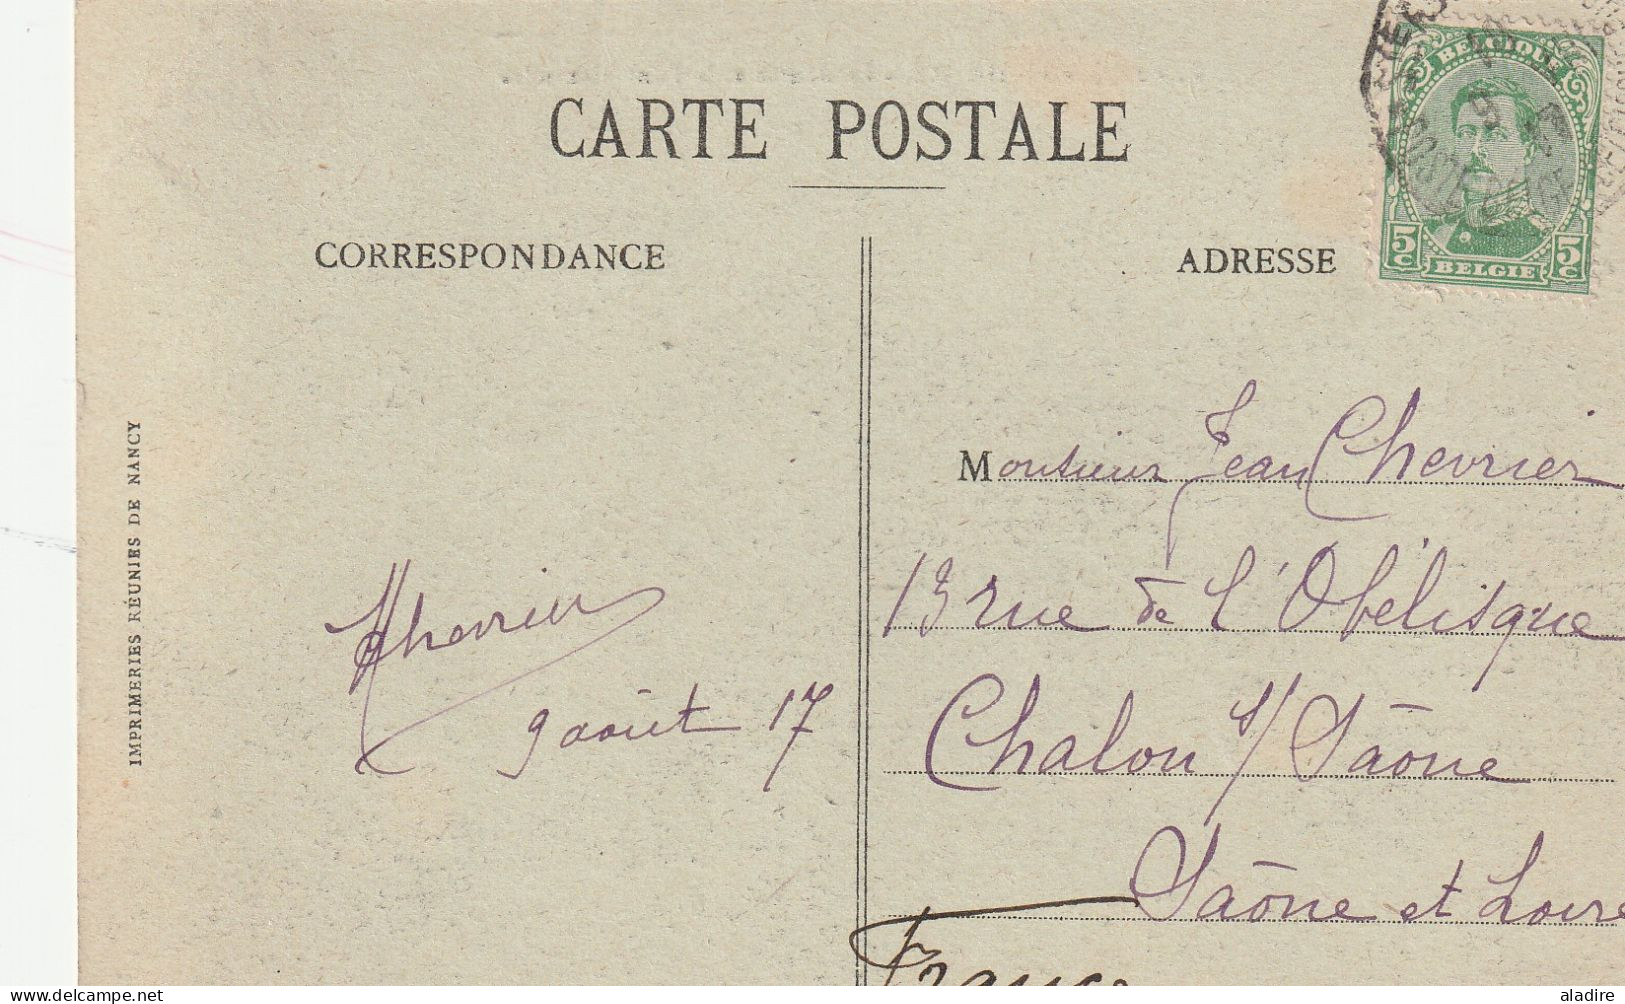 CARTE POSTALE
CORRESPONDANCE
ADRESSE
BELGIQUE
5 C
5 C
BELGIE
Monsieur Jean Chevrier
13 rue de l'Obélisque
Chalon s/ Saône
Saône et Loire
France
Chevrier
9 août 17
IMPRIMERIES RÉUNIES DE NANCY
aladire